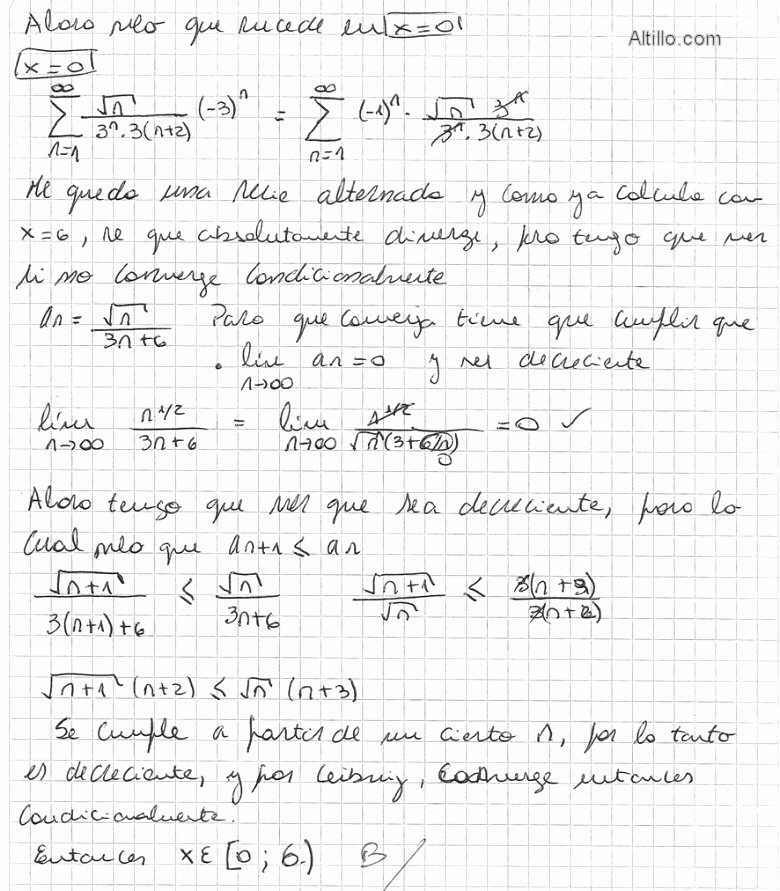 Ahora veo que sucede en x=0
Altillo.com
x=0
∑_{n=1}^{∞} √n / (3^n · 3(n+2)) (-3)^n = ∑_{n=1}^{∞} (-1)^n · √n 3^n / (3^n · 3(n+2))
Me queda una serie alternada y como ya calcule con
x=6, se que absolutamente diverge, pero tengo que ver
si no converge condicionalmente
an = √n / (3n+6) Para que converja tiene que cumplir que
• lím_{n→∞} an = 0 y ser decreciente
lím_{n→∞} n^{1/2} / (3n+6) = lím_{n→∞} n^{1/2} / (√n (3+6/n)) = 0 ✓
0
Ahora tengo que ver que sea decreciente, para lo
cual veo que an+1 ≤ an
√(n+1) / (3(n+1)+6) ≤ √n / (3n+6) √(n+1) / √n ≤ 3(n+3) / 3(n+2)
√(n+1) (n+2) ≤ √n (n+3)
Se cumple a partir de un cierto n, por lo tanto
es decreciente, y por Leibniz, converge entonces
condicionalmente.
Entonces x ∈ [0 ; 6) B /